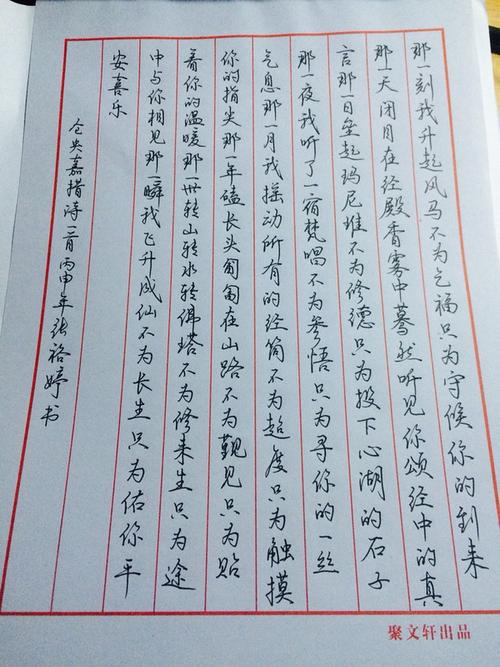 那一刻我升起风马不为乞福只为守候你的到来
那一天闭目在经殿香雾中蓦然听见你颂经中的真
言那一日垒起玛尼堆不为修德只为投下心湖的石子
那一夜我听了一宿梵唱不为参悟只为寻你的一丝
气息那一月我摇动所有的经筒不为超度只为触摸
你的指尖那一年磕长头匍匐在山路不为觐见只为贴
着你的温暖那一世转山转水转佛塔不为修来生只为途
中与你相见那一瞬我飞升成仙不为长生只为佑你平
安喜乐
仓央嘉措诗二首丙申年张裕婷书
聚文轩出品